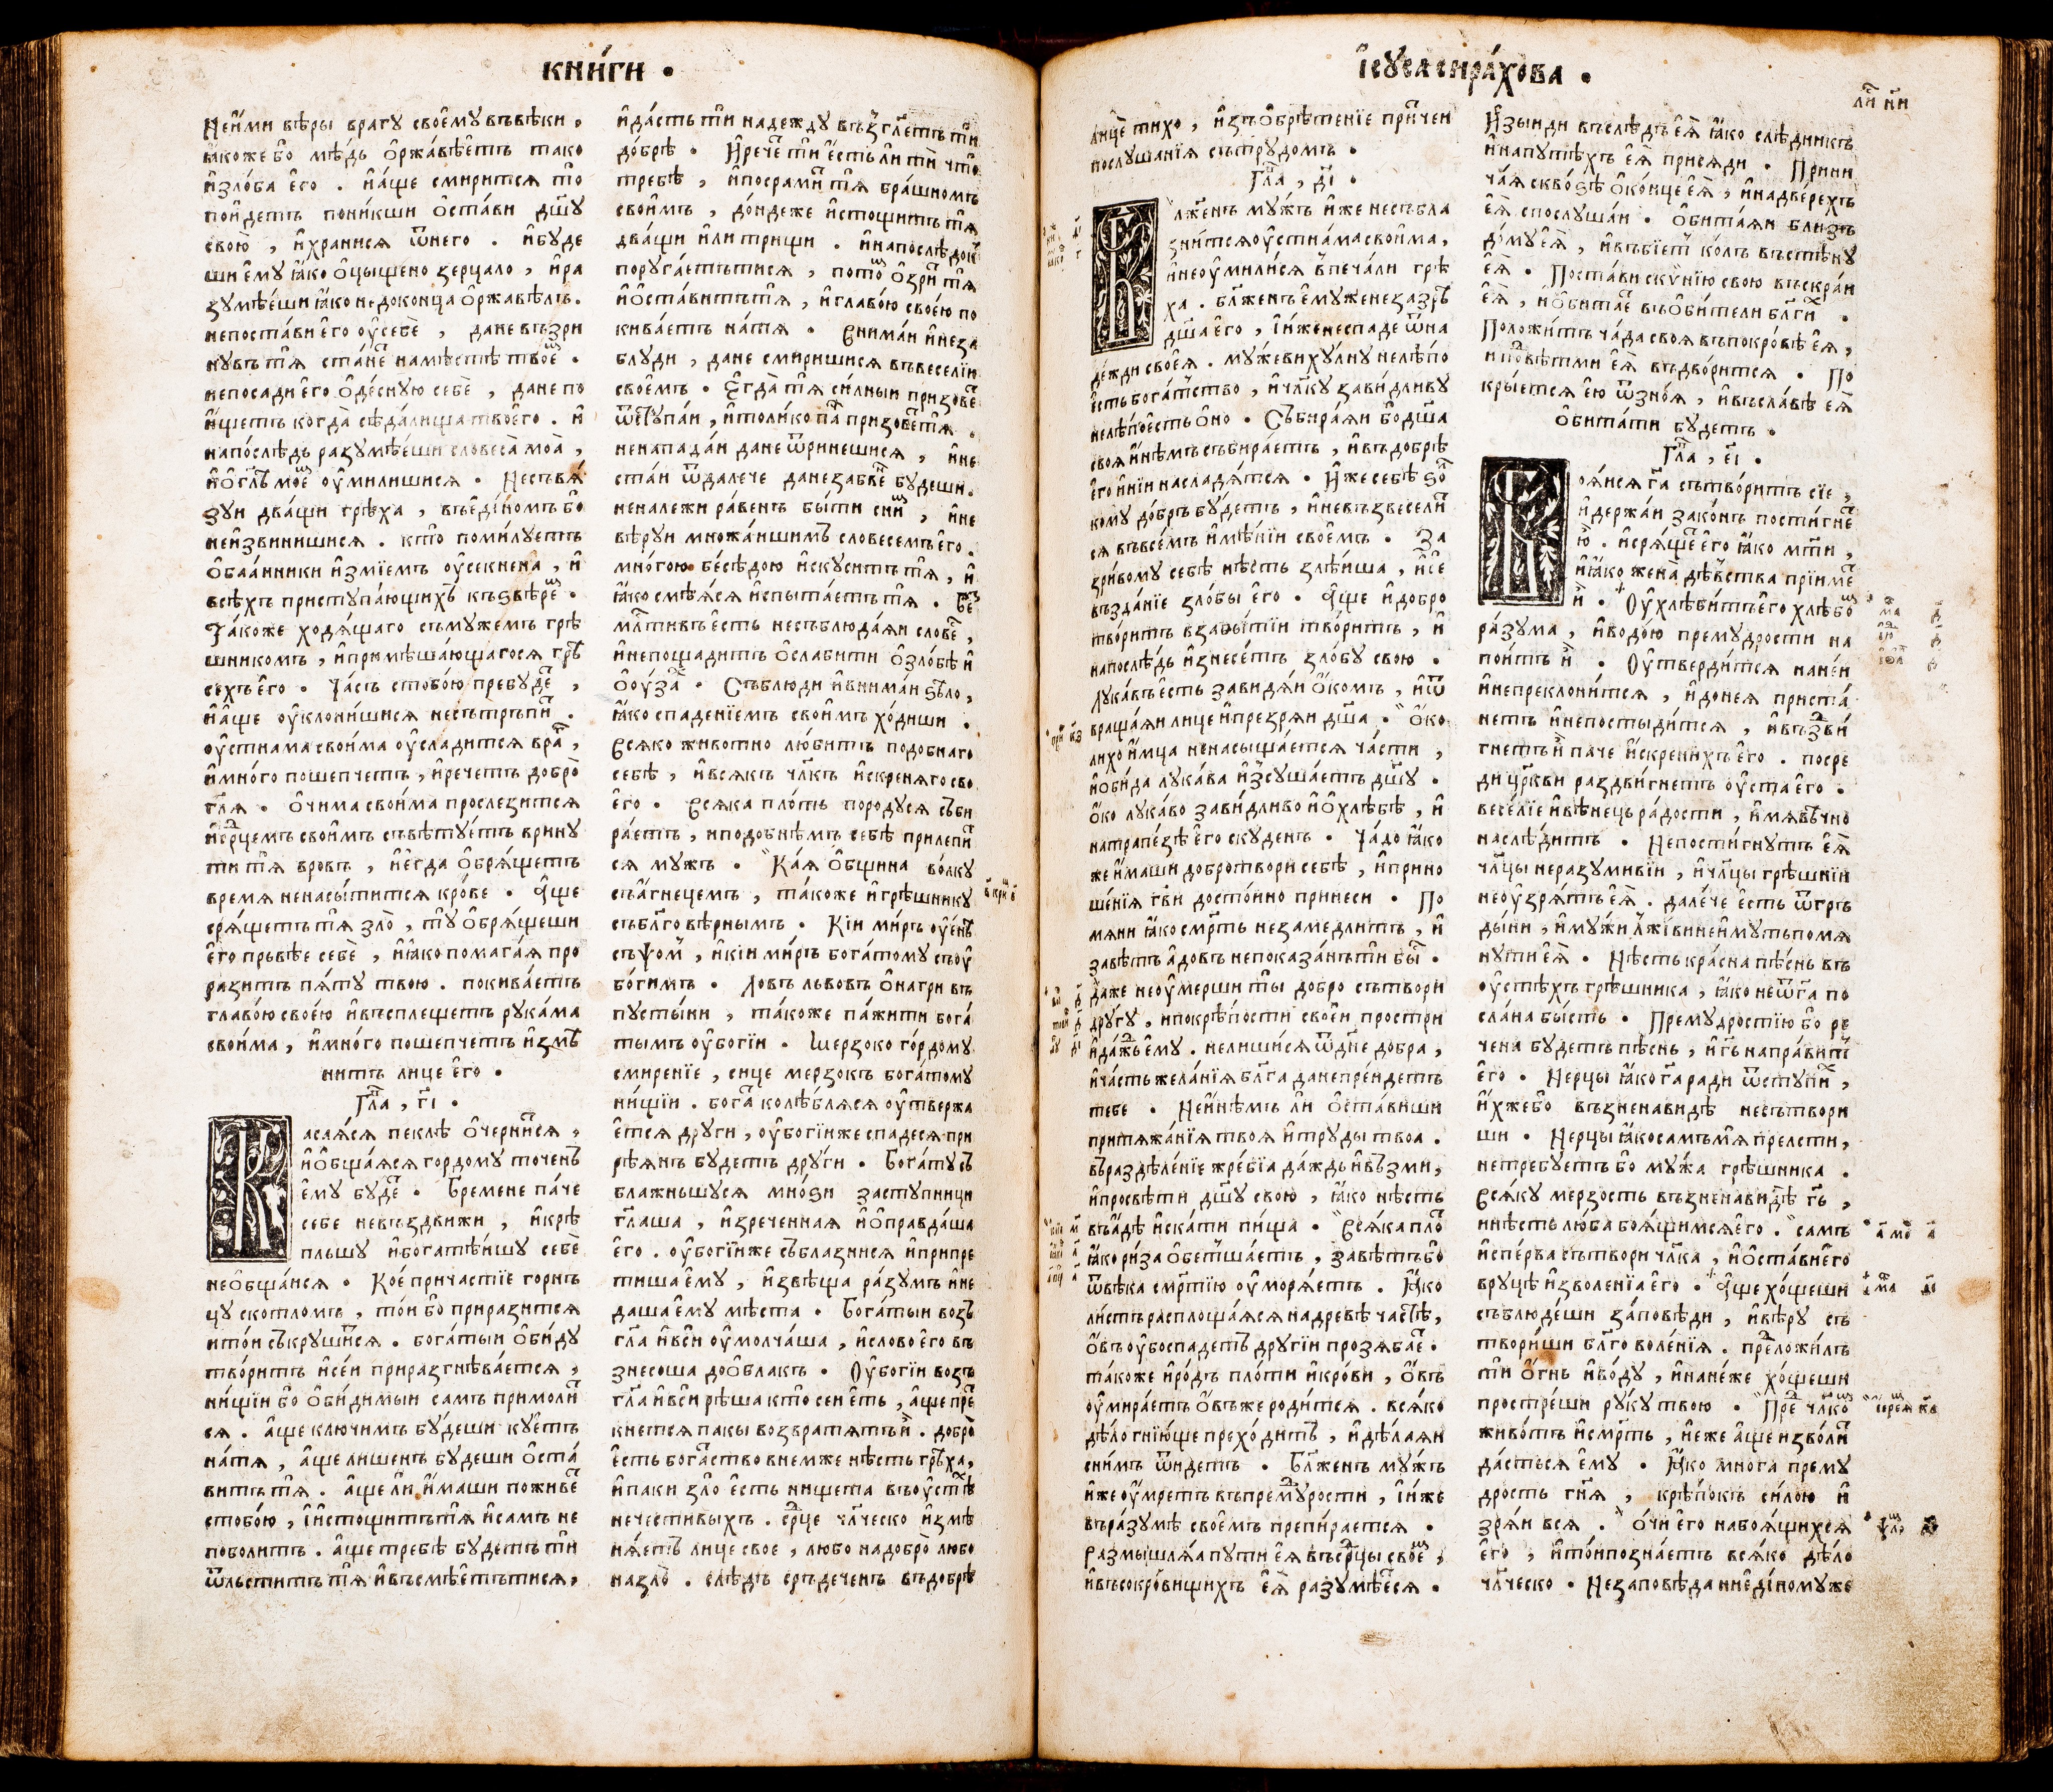 кни́ги .
Неи́ми вѣры врагу своемувъвѣки ,
ꙗкоже бо мѣдь ѻржа́вѣетъ тако
и҆зло́ба его . и҆а́ще смирится то
пои́детъ пони́кши ѻста́ви дш҃у
свою̀ , и҆храни́ся ѿнего . и҆буде
ши ему ꙗко ѻцыщено зерцало , и҆ра
зумѣ́еши ꙗко не доконца ѻржавѣлъ .
непоста́виего оу҆себѐ , дане възри
нувъ тя ста́не намѣстѣ твое .
непосадиего ѻде́сную себе , дане по
и҆щетъ когда̀ сѣда́лища твоего . и҆
напо́слѣдь разумѣ́еши словеса̀ моа̀ ,
и҆ѻгл҃ъ мое оу҆милишися . Несъвя́
зуи два́щи грѣха , въеди́номъ бо
неи҆звинишися . кто̀ поми́луетъ
ѻбаа́нники и҆зміемъ оу҆секнена , и҆
всѣхъ приступа́ющихъ къзвѣре .
Та́коже ходя́щаго съмужемъ грѣ
шникомъ , и҆примѣша́ющагося грѣ
сехъего . Ча́съ стобо́ю пребуде ,
и҆а́ще оу҆клони́шися несътръпи .
оу҆стнама свои́ма оу҆сладится вра ,
и҆мно́го пошепчетъ , и҆речетъ добро̀
гл҃я . ѻчима свои́ма прослезится
и҆срцемъ свои́мъ съвѣтуетъ врину
ти тя вровъ , и҆егда ѻбря́щетъ
время ненасы́тится кро́ве . А҆ще
сря́щетъ тя зло̀ , ту ѻбря́щеши
его прьвѣе себѐ , и҆ꙗко помага́я про
разитъ пя́ту твою . покива́етъ
главо́ю своею и҆въсплещетъ рука́ма
свои́ма , и҆мно́го пошепчетъ и҆змѣ
нитъ лице его .
Гла , г҃і .
Касая́ся пеклѣ ѻчерни́ся ,
и҆ѻбща́яся гордому точенъ
ему буде . Бремене па́че
себе невъздвижи , и҆крѣ
пльшу и҆богатѣ́ишу себѐ
неѻбща́ися . Кое прича́стіе горнъ
цу скотломъ , то́и бо приразится
ито́и съкруши́ся . бога́тыи ѻби́ду
тво́ритъ и҆се́и приразгнѣва́ется ,
ни́щіи бо ѻби́димыи самъ примоли
ся . а҆ще ключимъ бу́деши куетъ
на́тя , а҆ще лишенъ будеши ѻста́
витъ тя . а҆ще ли и҆маши поживе
стобо́ю , и҆и҆стощитътя и҆самъ не
поболитъ . а҆ще требѣ будетъ ти
ѿльститъ тя и҆въсмѣетътися ,
и҆да́сть ти надежду възгл҃етъ ти
до́брѣ . И҆рече ти е́сть ли ти что̀
требѣ , и҆посрами тя бра́шномъ
свои́мъ , до́ндеже и҆стощитъ тя
два́щи и҆ли трищи . и҆напослѣдок
поруга́етътися , пото̀ ѻзри тя
и҆ѻста́витътя , и҆главо́ю своею по
кива́етъ на́тя . Внима́и и҆неза
блуди , дане смиришися въвеселіи
своемъ . Е҆гда̀ тя си́лныи призове
ѿступаи , и҆толи́ко па призоветя .
ненапада́и дане ѿринешися , и҆не
ста́и ѿдалече данезабве будеши .
неналежи ра́венъ бы́ти сни , и҆не
вѣруи множа́ишимъ словесемъего .
мно́гою бесѣ́дою и҆скуситътя , и҆
ꙗко смѣяся и҆спыта́етътя . Бе
млтивъе́сть несъблюда́яи слове ,
и҆непощадитъ ѻслабити ѻзло́бѣ и҆
ѻоу́за . Съблюди и҆внима́и ѕѣло ,
ꙗко спаденіемъ свои́мъ хо́диши .
Всяко живо́тно лю́битъ подобнаго
себѣ , и҆всякъ чл҃къ и҆скреня́госво
его . Всяка пло́ть породуся съби
ра́етъ , иподобнѣмъ себѣ прилепи
ся мужъ . Ка́я ѻбщина во́лку
съа́гнецемъ , та́коже и҆грѣшнику
съблг҃овѣрнымъ . Кі́и ми́ръ оуе́нѣ
съѱо́м , и҆кі́и ми́ръ бога́тому съоу
бо́гимъ . Ловъ львовъ ѻнагри въ
пусты́ни , та́коже па́жити бога́
тымъ оу҆богіи . Мерзоко го́рдому
смиреніе , сице мерзокъ бога́тому
ни́щіи . бога колѣблйся оу҆твержа
ется други , оу҆богіиже спадеся при
рѣя́нъ будетъ дру́ги . Бога́тусъ
блажньшуся мно́ѕи заступници
гл҃аша , и҆зреченная и҆ѻправда́ша
его . оу҆богі́иже съблазнися и҆припре
тиша ему , и҆звѣща ра́зумъ и҆не
даша ему мѣста . Бога́тыи возъ
гл҃а и҆вси оу҆молча́ша , и҆слово его въ
знесоша доѻблакъ . Оу҆богіи возъ
гл҃а и҆вси рѣша кто̀ сеи е́ть , а҆ще пре
кнется пакы возвратятъи . добро̀
е́сть бога́ство внемже нѣсть грѣ́ха ,
и҆паки зло̀ е́сть нищета въоу҆стѣ
нечестивыхъ . срце чл҃ческо и҆змѣ
ня́етъ лице свое , любо надобро̀ любо
назло̀ . слѣдъ сръдеченъ въдобрѣ
в҃ кри ѕ҃
і҆су́са сира́хова .
ли ни
лице тихо , и҆зъѻбрѣтеніе причеи
послушанія сътрудомъ .
Гла , д҃і .
Блженъ му́жъ и҆же несъбла
зни́тсяоу҆стна́масвои́ма ,
и҆неоу҆мили́ся впеча́ли грѣ
ха . блженъ емуженезазрѣ
дш҃аего , і҆и́женеспаде ѿна
де́жди своея . му́жевихулну нелѣ́по
есть бога́тство , и҆чл҃ку зави́дливу
нелѣ́поесть ѻ́но . Събира́яи бо́дш҃а
своя и҆нѣмъсъбира́етъ , и҆въдобрѣ
его и҆ніи насладя́тся . И҆жесебѣ ѕо
кому до́бръ бу́детъ , и҆невъзвесели
ся въвсемъ и҆мѣніи своемъ . За
зри́вому себѣ нѣсть злѣ́иша , и҆се
възда́ніе зло́бы его . А҆ще и҆добро
тво́ритъ взабы́тіи тво́ритъ , и҆
напослѣ́дь и҆знесе́тъ зло́бу свою .
Лука́въесть завидя́и ѻ́комъ , и҆ѿ
враща́яи лице и҆презряи дш҃а . ѻ́ко
лихои́мца ненасыща́ется ча́сти ,
и҆ѻби́да лука́ва и҆зсуша́етъ дш҃у .
ѻ́ко лука́во зави́дливо и҆ѻхлѣбѣ , и҆
натрапе́зѣ его скуденъ . Ча́до ꙗко
же и҆маши добротвори себѣ , и҆прино
ше́нія гв҃и досто́ино принеси . По
мяни ꙗко смр҃ть незамедлитъ , и҆
завѣтъ а́довъ непоказа́нъти бы .
даже неоу҆мерши ты добро сътвори
другу , ипокрѣпости своеи простри
и҆да́жьему . нелиши́ся ѿдне добра ,
и҆ча́сть жела́нія бл҃га данепре́идетъ
тебе . Неи҆нѣмъ ли ѻста́виши
притяжа́нія твоя и҆труды твоа .
въраздѣле́ніе жре́бія да́ждь и҆възми ,
и҆просвѣти дш҃у свою , ꙗко нѣсть
въа́дѣ и҆ска́ти пи́ща . Вся́ка пло
ꙗко риза ѻбетша́етъ , завѣтъбо
ѿвѣка смр҃тію оу҆моря́етъ . Ꙗко
ли́стъ расплоща́яся надревѣ частѣ ,
ѻ́въ оубоспадетъ другіи прозябае .
та́коже и҆ро́дъ пло́ти и҆кро́ви , ѻ́въ
оу҆мира́етъ ѻ́въже роди́тся . вся́ко
дѣло гнію́ще прехо́дитъ , и҆дѣ́лаяи
сни́мъ ѿидетъ . Блженъ му́жъ
и҆жеоу҆мретъ въпрему́рости , і҆и́же
вьра́зумѣ своемъ препира́ется .
размышля́а пути ея въсрцы свое ,
и҆въсокро́вищихъ ея разумѣ́еся .
И҆зыиди въслѣдъ ея ꙗко слѣдникъ
и҆напутѣхъ ея присяди . Прини
ча́я скво́зѣ ѻко́нце ея , и҆надве́рехъ
ея спослу́шаи . ѻбита́яи близъ
до́му ея , и҆възбіетъ ко́лъ въстѣну
ея . Поста́ви скѵ́нію свою въскра́и
ея , и҆ѻбитае въѻби́тели блгихъ .
Положи́тъ ча́да своя въпокро́вѣ ея ,
и по́вѣтми ея въдво́рится . По
кры́ется ею ѿзно́я , и҆въсла́вѣ ея
ѻбита́ти будетъ .
Гла , е҃і .
Боя́ися га сътво́ритъ сіе ,
и҆держа́и зако́нъ пости́гне
ю . и҆сря́щеего ꙗко мти ,
и҆ꙗко жена̀ дѣвства приме
и . Оу҆хлѣби́тъего хлѣбо
ра́зума , и҆водо́ю премудрости на
пои́тъ и . Оу҆тверди́тся нане́и
и҆непреклони́тся , и҆донея приста́
нетъ и҆непосты́дится , и҆възви́
гнетъи паче и҆скрених его . посре
ди цр҃кви раздви́гнетъ оу҆ста его .
весе́ліе и҆вѣне́ць ра́дости , и҆мявѣчно
наслѣ́дитъ . Непости́гнутъ ея
чл҃цы неразумни́и , и҆чл҃цы грѣшніи
неоу҆зря́тъея . дале́че есть ѿгръ
ды́ни , и҆му́жи лжі́вииеи҆мутьпомя
нути ея . Нѣсть кра́сна пѣснь въ
оу҆стѣхъ грѣшника , ꙗко неѿга по
сла́на бы́сть . Премудростію бо ре
чена будетъ пѣснь , и҆гь напра́вит
его . Нерцы ꙗко га ради ѿступи ,
и҆хжебо възненавидѣ несътвори
ши . Нерцы ꙗкосамъмя прелсти ,
нетребуетъ бо му́жа грѣшника .
Вся́ку мерзость възненавидѣ гь ,
инѣсть люба боя́щимсяего . самъ
и҆спе́рва сътвори чл҃ка , и҆ѻста́виего
вруцѣ и҆зволенія его . А҆ще хо́щеши
съблюде́ши за́повѣди , и҆вѣру съ
твори́ши бл҃го воле́нія . преложи́лъ
ти ѻ́гнь и҆во́ду , и҆нане́же хо́щеши
простре́ши руку твою . Пре чл҃ко
живо́тъ и҆смр҃ть , и҆еже а҆ще изво́ли
да́сться ему . Ꙗко многа прему
дрость гня , крѣ́покъ си́лою и҆
зря́и вся . ѻ́чи его набоя́щихся
его , и҆то́ипозна́етъ вся́ко дѣ́ло
чл҃ческо . Незаповѣда ниеди́номуже